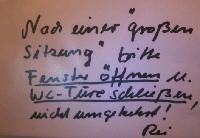 Nach einer "großen
Sitzung" bitte
Fenster öffnen u.
WC-Türe schließen
nicht umgekehrt!